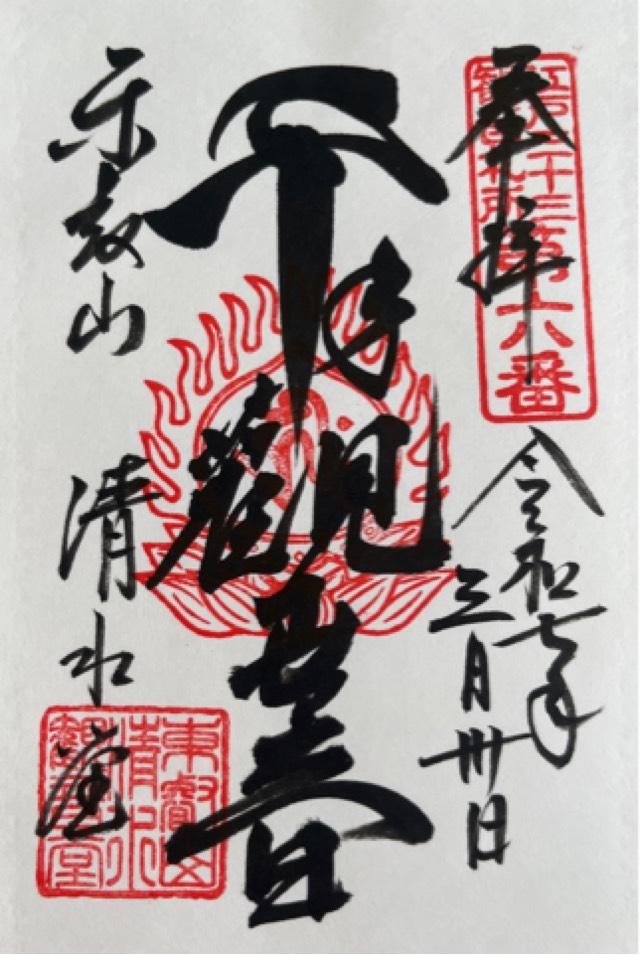 奉拝
江戸三十三
觀音札所
第六番
令和七年
三月卅日
千手觀世音
東叡山
清水堂
東叡山
清水
觀音堂